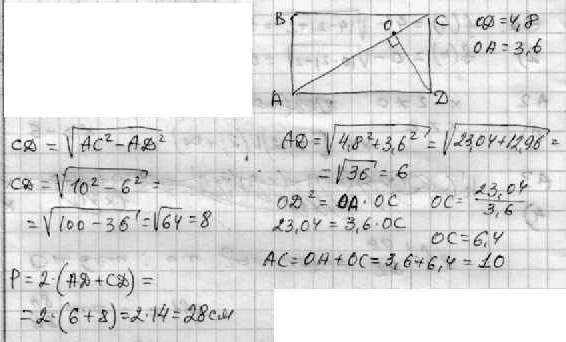 B
O
C
OD=4,8
OA=3,6
A
D
AD=√4,8²+3,6²=√23,04+12,96=
=√36=6
OD²=OA·OC
OC=23,04/3,6
23,04=3,6·OC
OC=6,4
AC=OA+OC=3,6+6,4=10
CD=√AC²-AD²
CD=√10²-6²=
=√100-36=√64=8
P=2·(AD+CD)=
=2·(6+8)=2·14=28см